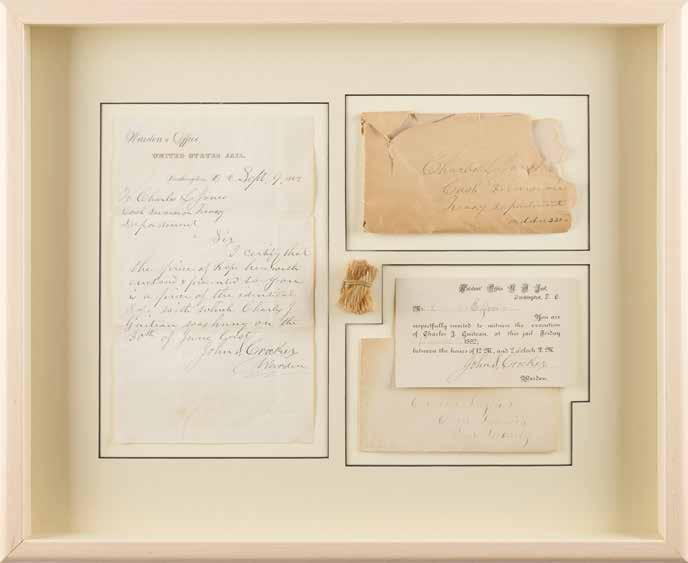 Warden's Office
UNITED STATES JAIL.
Washington D. C. Sept. 9, 1882
To Charles L. Jones
Cash Division Treasy
Department
Sir
I certify that
the piece of rope herewith
enclosed & presented to you
is a piece of the identical
with which Charles J
Guiteau was hung on the
30th of June, last.
John S. Crocker
Warden
Charles L. Jones
Cash Division
Treasy Department
Warden's Office U. S. Jail,
Washington, D. C.
Mr.
You are
respectfully invited to witness the execution
of Charles J. Guiteau, at this jail Friday
1882,
between the hours of 12 M., and 2 o'clock P. M.
John S. Crocker
Warden.